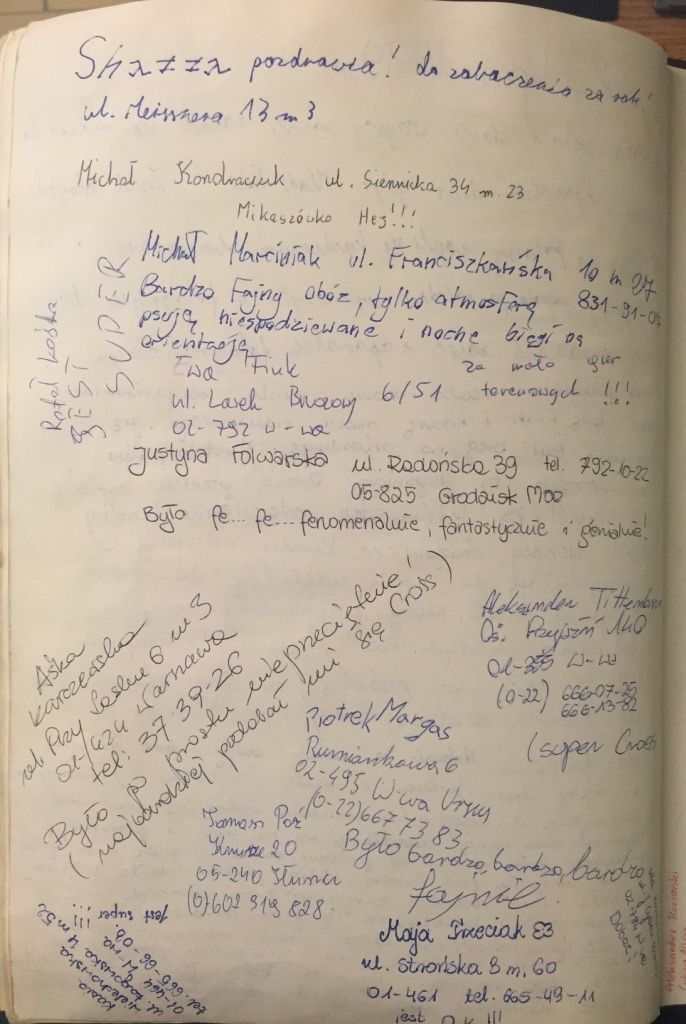 Shazza pozdrawia! do zobaczenia za rok!
ul. Meissnera 13 m 3
Michał Kondraciuk ul. Siennicka 34 m. 23
Mikaszówko Hej!!!
Michał Marciniak ul. Franciszkańska 10 m 27
Bardzo Fajny obóz, tylko atmosferę 831-91-07
psują niespodziewane i nocne biegi na
orientację
Rafał
JEST
SUPER
Ewa Fiuk za mało gier
ul. Lasek Brzozowy 6/51 terenowych !!!
02-792 W-wa
Justyna Folwarska ul. Radońska 39 tel. 792-10-22
05-825 Grodzisk Maz
Było fe... fe... fenomenalnie, fantastycznie i genialnie!
Aśka
Karczewska
ul. Przy Lasku 6 m 3
01-424 Warszawa
tel: 37-39-26
Było po prostu nieprzeciętnie!
(najbardziej podobał mi się Cross)
Aleksander
Oś. Przyjaźń 140
W-wa
(0-22) 666-07-25
666-13-82
(super Cross
Piotrek Margas
Rumiankowa 6
02-495 W-wa Ursus
(0-22) 667 73 83
Było bardzo, bardzo, bardzo
fajnie
Tomasz
20
05-240 Tłuszcz
(0) 602 919 828
Kasia
ul. 4 m 52
01-464 W-wa
tel. 665-66-08
jest super !!!
Maja Trzeciak
ul. Strońska 3 m. 60
01-461 tel. 665-49-11
jest O.K.!!!